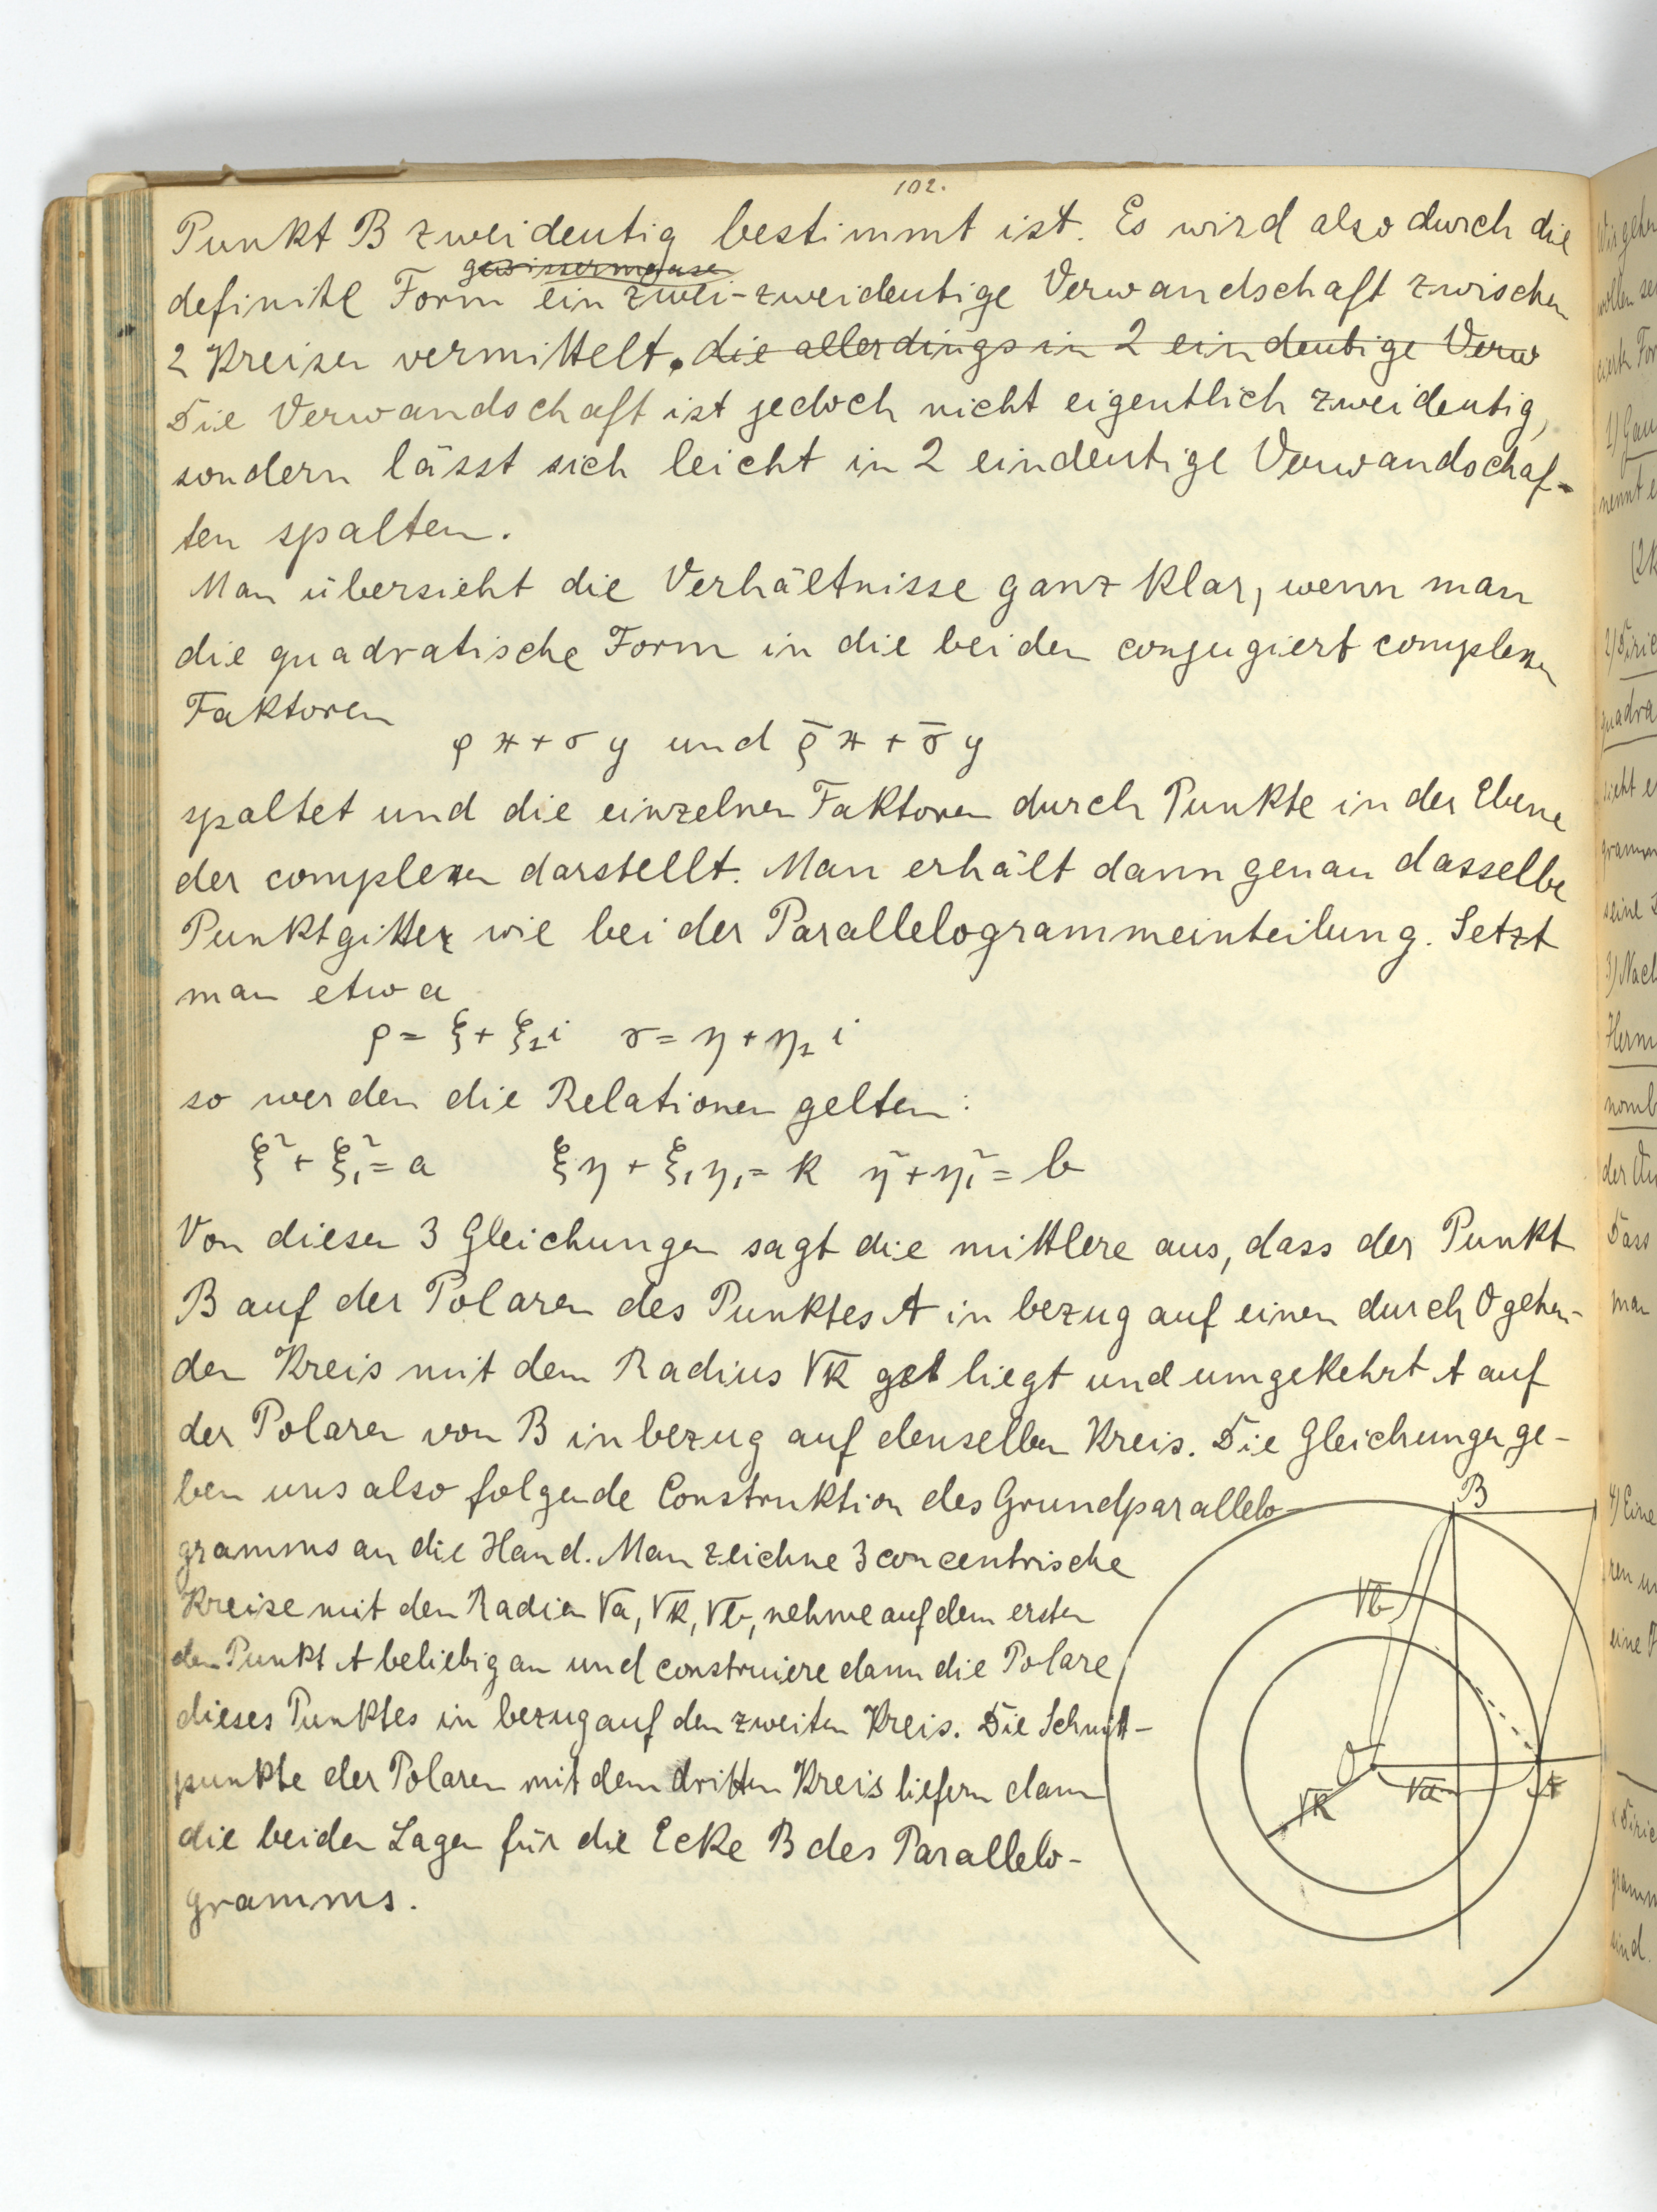 102.
Punkt B zweideutig bestimmt ist. Es wird also durch die
gewissermasse
definite Form ein zwei-zweideutige Verwandschaft zwischen
2 Kreisen vermittelt. die allerdings in 2 eindeutige Verw
Die Verwandschaft ist jedoch nicht eigentlich zweideutig,
sondern lässt sich leicht in 2 eindeutige Verwandschaf-
ten spalten.
Man übersieht die Verhältnisse ganz klar, wenn man
die quadratische Form in die beiden conjugiert complexen
Faktoren
ρx + σy und ρ̄x + σ̄y
spaltet und die einzelnen Faktoren durch Punkte in der Ebene
der complexen darstellt. Man erhält dann genau dasselbe
Punktgitter wie bei der Parallelogrammeinteilung. Setzt
man etwa
ρ = ξ + ξ₁i σ = η + η₁i
so werden die Relationen gelten:
ξ² + ξ₁² = a ξη + ξ₁η₁ = k η² + η₁² = b
Von diesen 3 Gleichungen sagt die mittlere aus, dass der Punkt
B auf der Polaren des Punktes A in bezug auf einen durch O gehen-
den Kreis mit dem Radius √k liegt und umgekehrt A auf
der Polaren von B in bezug auf denselben Kreis. Die Gleichungen ge-
ben uns also folgende Construktion des Grundparallelo-
gramms an die Hand. Man zeichne 3 concentrische
Kreise mit den Radien √a, √k, √b, nehme auf dem ersten
den Punkt A beliebig an und construiere dann die Polare
dieses Punktes in bezug auf den zweiten Kreis. Die Schnitt-
punkte der Polaren mit dem dritten Kreis liefern dann
die beiden Lagen für die Ecke B des Parallelo-
gramms.
B
√b
O
√k
√a
A